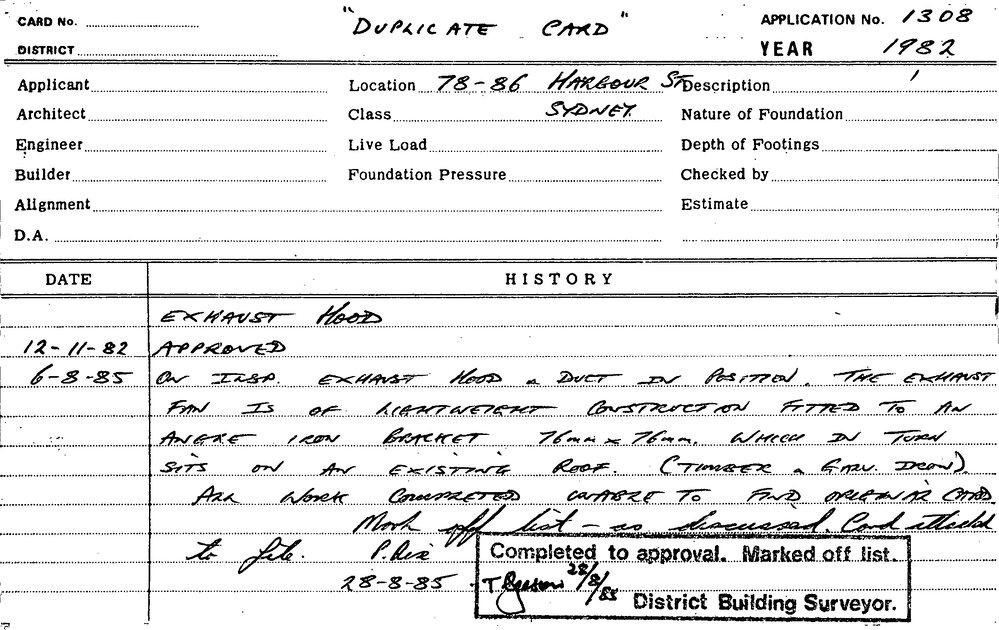 CARD No.
"DUPLICATE CARD"
APPLICATION No. 1308
DISTRICT
YEAR 1982
Applicant
Location 78-86 HARBOUR ST
Description
Architect
Class SYDNEY.
Nature of Foundation
Engineer
Live Load
Depth of Footings
Builder
Foundation Pressure
Checked by
Alignment
Estimate
D.A.
DATE HISTORY
EXHAUST HOOD
12-11-82 APPROVED
6-8-85 ON INSP. EXHAUST HOOD & DUCT IN POSITION. THE EXHAUST
FAN IS OF LIGHTWEIGHT CONSTRUCTION FITTED TO AN
ANGLE IRON BRACKET 76mm x 76mm. WHICH IN TURN
SITS ON AN EXISTING ROOF. (TIMBER & GALV. IRON).
ALL WORK COMPLETED UNABLE TO FIND ORIGINAL CARD.
Mark off list - as discussed. Card attached
to file. P. Dix
28-8-85
Completed to approval. Marked off list.
28/8/85
District Building Surveyor.